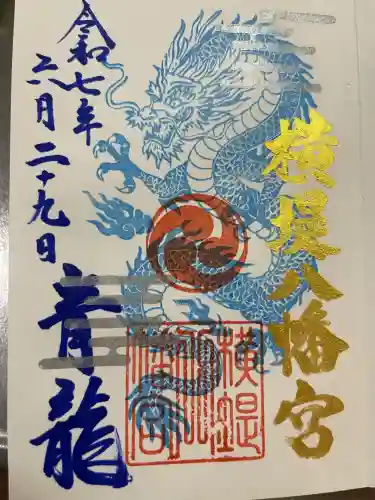 横堤八幡宮
令和七年
六月二十九日
青龍
横堤八幡宮